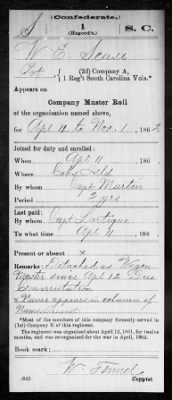 (Confederate.)
S 1 S. C.
(Hagood's)
W. E.
Pvt, (2d) Company A,
1 Reg't South Carolina Vols.*
Company Muster Roll
of the organization named above,
for Apl 10 to Nov. 1, 1862
Joined for duty and enrolled:
When Apl 11, 186
Where
By whom Capt Martin
Period 3 yrs
Last paid:
By whom Capt
To what time Apl 11, 186
Present or absent x
Remarks: Detached as Wagon
Master since Apl 12. Due
Commutation
x Name appears in column of
Names present
*Most of the members of this company formerly served in
(1st) Company E of this regiment.
This regiment was organized about April 12, 1861, for twelve
months, and was re-organized for the war in April, 1862.
Book mark:
W.
(642) Copyist.